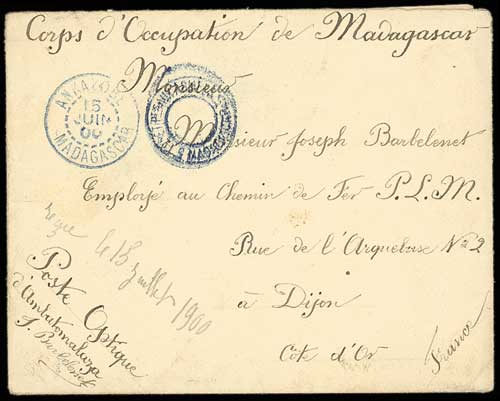 Corps d'Occupation de Madagascar
Monsieur
Monsieur Joseph Barbelenet
Employé au Chemin de Fer P.L.M.
Rue de l'Arquebuse No 2
à Dijon
Côte d'Or
France
15
JUIN
00
MADAGASCAR
le 15 juillet 1900
Poste Optique
d'Ambatomalaza
J. Barbelenet